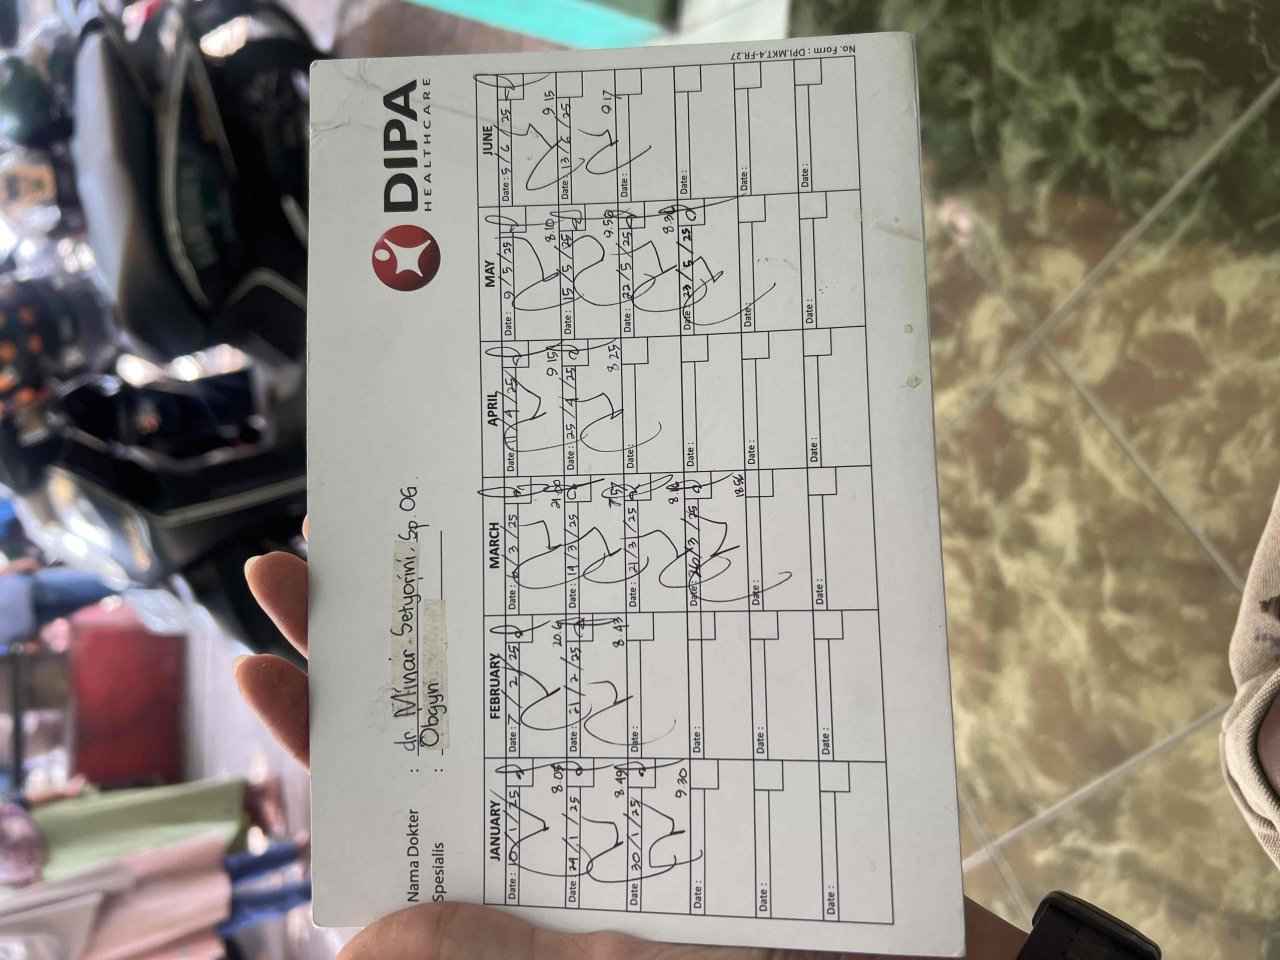 DIPA
HEALTHCARE
Nama Dokter : dr Minar Setyorini, Sp.OG.
Spesialis : Obgyn
JANUARY FEBRUARY MARCH APRIL MAY JUNE
Date : 10/1/25 Date : 7/2/25 Date : 6/3/25 Date : 11/4/25 Date : 9/5/25 Date : 5/6/25
8.05 21.00 9.15 8.10 9.15
Date : 24/1/25 Date : 21/2/25 Date : 14/3/25 Date : 25/4/25 Date : 15/5/25 Date : 13/6/25
8.49 8.43 7.57 8.25 9.55 9.17
Date : 30/1/25 Date : Date : 21/3/25 Date : Date : 22/5/25 Date :
9.30
Date : Date : Date : 26/3/25 Date : Date : /5/25 Date :
18.56
Date : Date : Date : Date : Date : Date :
Date : Date : Date : Date : Date : Date :
No. Form : DPI.MKT.4-FR.27